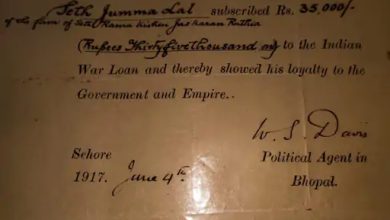 Seth Jumma Lal subscribed Rs. 35,000/-
of the firm of Seth Rama Kishen Jaskaran Ruthia
(Rupees Thirty five thousand only) to the Indian
War Loan and thereby showed his loyalty to the
Government and Empire..
W. S. Davis
Sehore Political Agent in
1917. June 4th Bhopal.